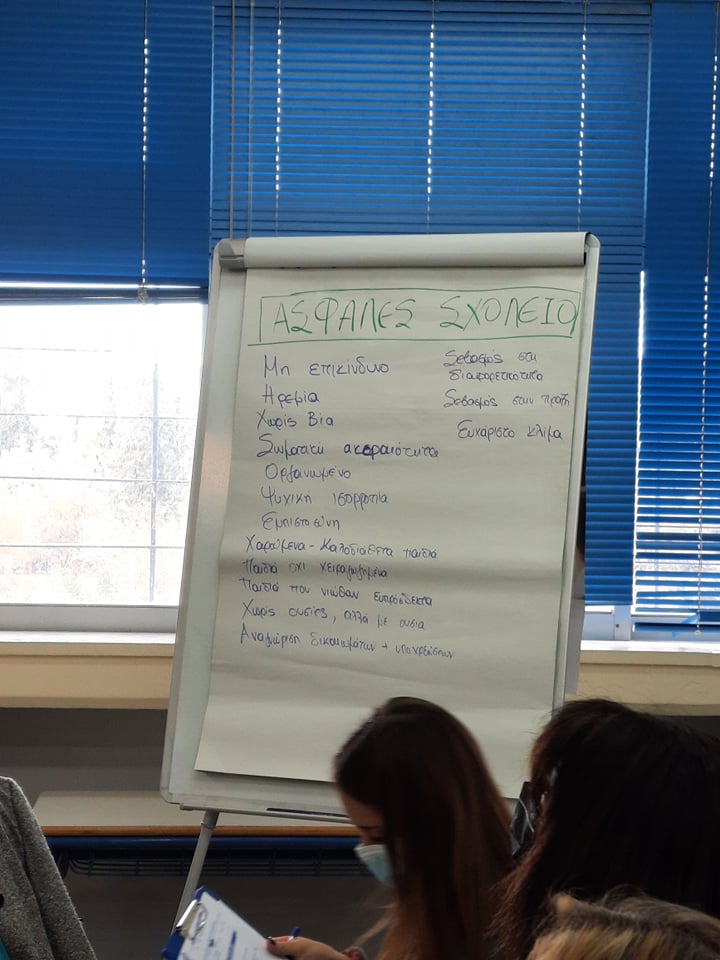 ΑΣΦΑΛΕΣ ΣΧΟΛΕΙΟ
Μη επικίνδυνο
Ηρεμία
Χωρίς Βία
Σωματική ακεραιότητα
Οργανωμένο
Ψυχική ισορροπία
Εμπιστοσύνη
Χαρούμενα - Καλοδιάθετα παιδιά
Παιδιά όχι χειραγωγημένα
Παιδιά που νιώθουν ευπρόσδεκτα
Χωρίς ουσίες, αλλά με ουσία
Αναγνώριση δικαιωμάτων + υποχρεώσεων
Σεβασμός στη
διαφορετικότητα
Σεβασμός στην πράξη
Ευχάριστο κλίμα